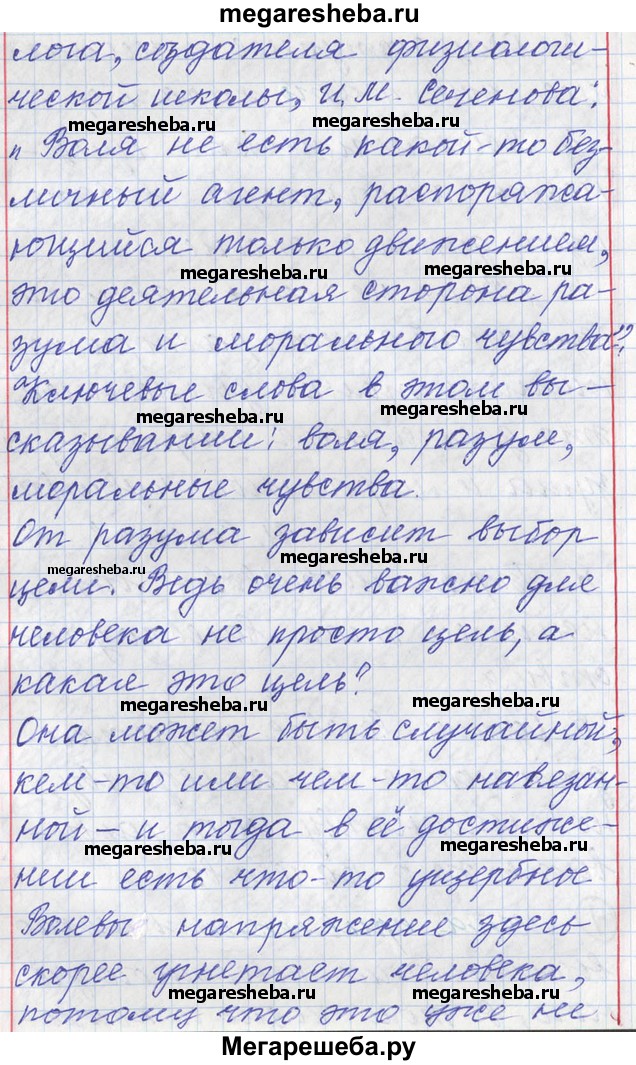 megaresheba.ru
лога, создателя физиологи-
ческой школы, И.М. Сеченова:
megaresheba.ru megaresheba.ru
"Воля не есть какой-то без-
личный агент, распоряжа-
ющийся только движением,
megaresheba.ru megaresheba.ru
это деятельная сторона ра-
зума и морального чувства".
Ключевые слова в этом вы-
megaresheba.ru megaresheba.ru
сказывании: воля, разум,
моральные чувства.
От разума зависит выбор
megaresheba.ru megaresheba.ru
цели. Ведь очень важно для
человека не просто цель, а
какая это цель?
megaresheba.ru megaresheba.ru
Она может быть случайной,
кем-то или чем-то навязан-
ной – и тогда в её достиже-
megaresheba.ru megaresheba.ru
нии есть что-то ущербное
напряжение здесь
скорее угнетает человека,
megaresheba.ru megaresheba.ru
потому что это уже не
Мегарешеба.ру